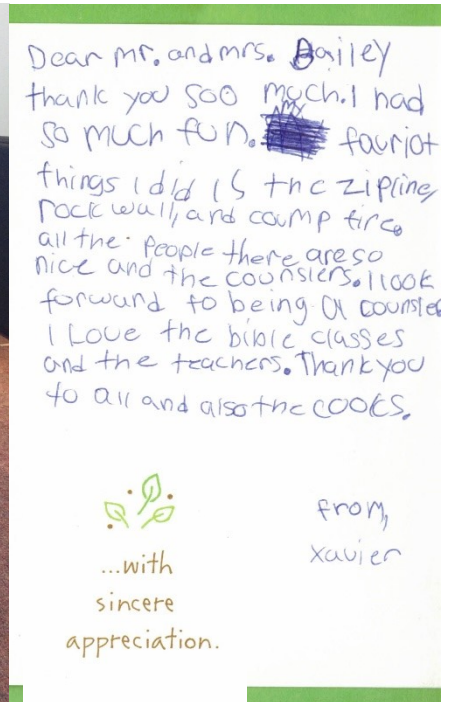 Dear Mr. and mrs. Bailey
thank you soo much. I had
so much fun. my fauriot
things I did is the zipline,
rock wall, and coump fire.
all the people there are so
nice and the counslers. I look
forward to being a counsler
I Love the bible classes
and the teachers. Thank you
to all and also the cooks.
from,
xavier
...with
sincere
appreciation.